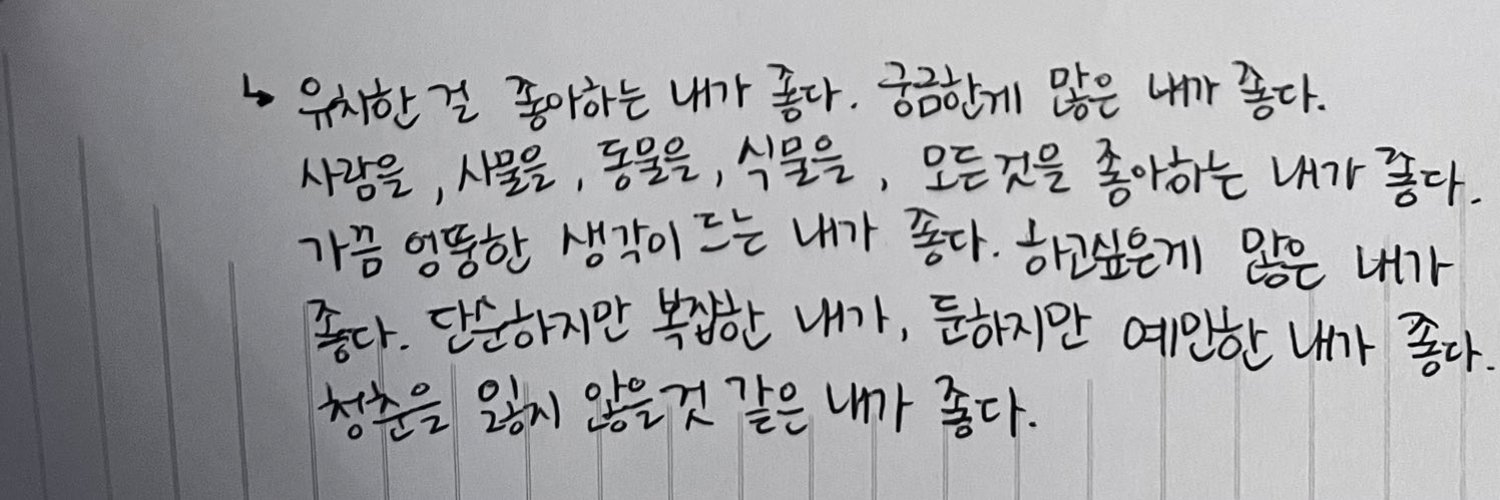 ↳ 유치한 걸 좋아하는 내가 좋다. 궁금한게 많은 내가 좋다.
사람을, 사물을, 동물을, 식물을, 모든것을 좋아하는 내가 좋다.
가끔 엉뚱한 생각이 드는 내가 좋다. 하고싶은게 많은 내가
좋다. 단순하지만 복잡한 내가, 둔하지만 예민한 내가 좋다.
청춘을 잃지 않을것 같은 내가 좋다.